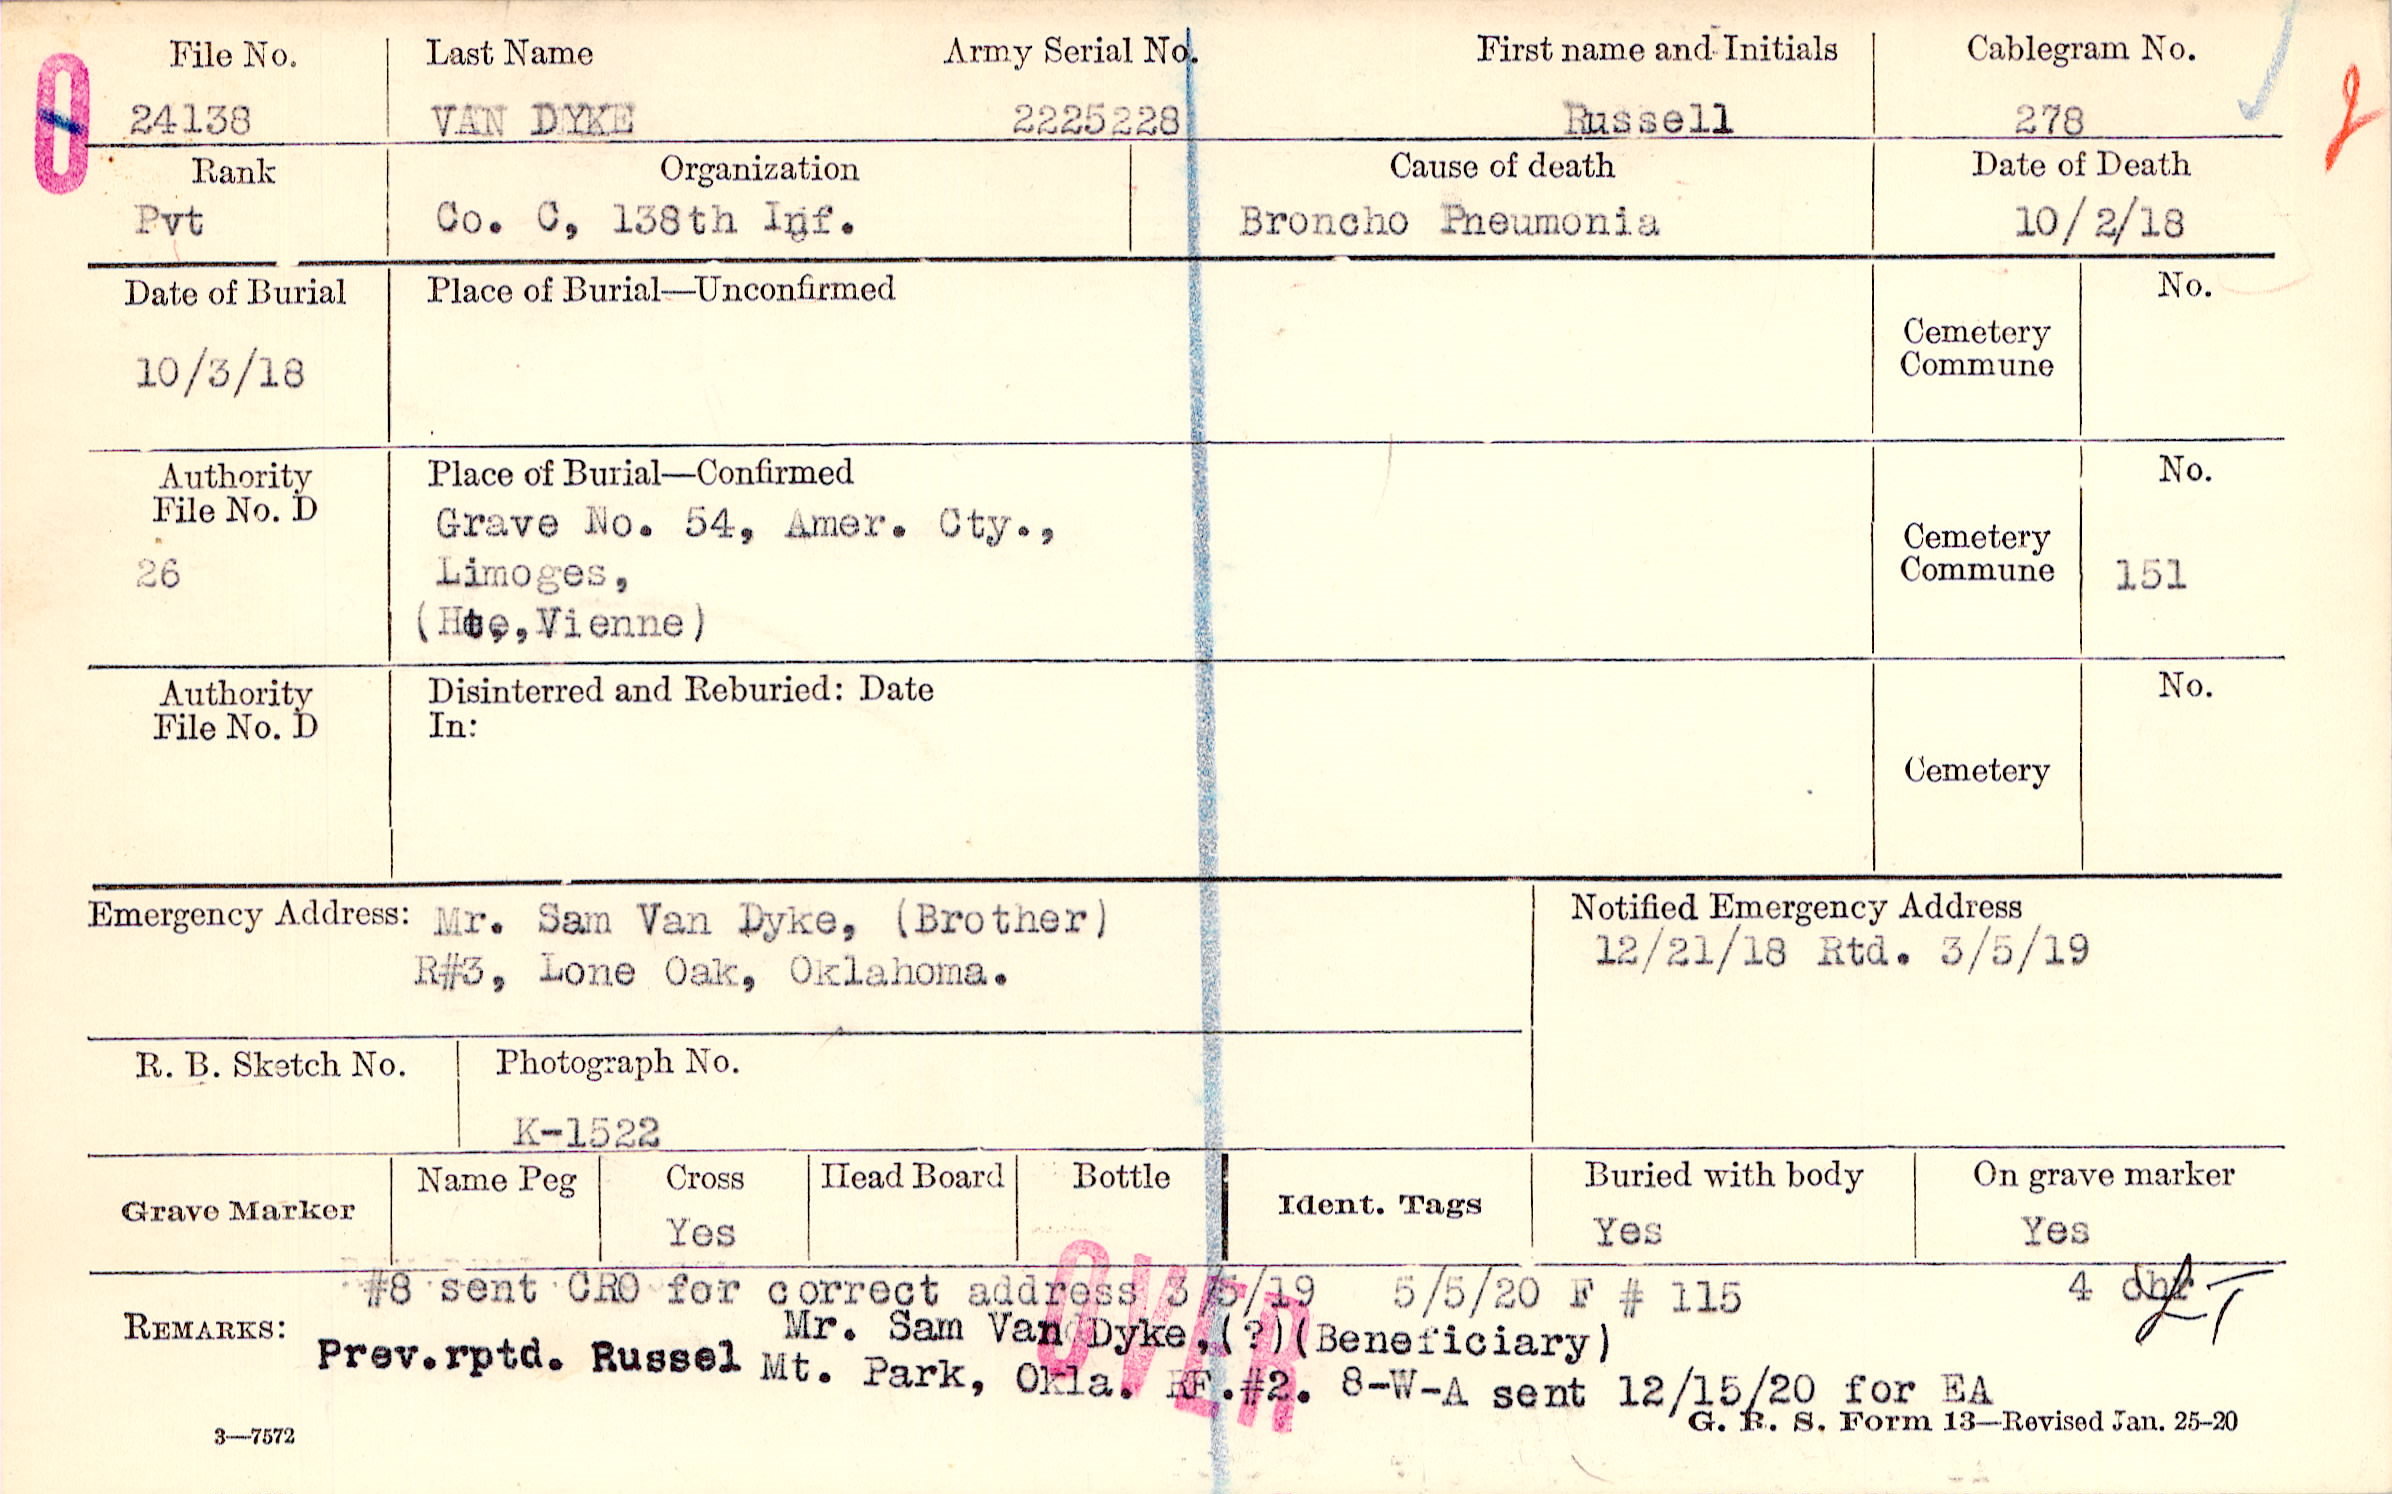 File No. Last Name Army Serial No. First name and Initials Cablegram No.
0 24138 VAN DYKE 2225228 Russell 278 2
Rank Organization Cause of death Date of Death
Pvt Co. C, 138th Inf. Broncho Pneumonia 10/2/18
Date of Burial Place of Burial—Unconfirmed No.
Cemetery
Commune
10/3/18
Authority Place of Burial—Confirmed No.
File No. D
Grave No. 54, Amer. Cty.,
Cemetery
26 Limoges, Commune 151
(Hte,Vienne)
Authority Disinterred and Reburied: Date No.
File No. D In:
Cemetery
Emergency Address: Mr. Sam Van Dyke, (Brother) Notified Emergency Address
R#3, Lone Oak, Oklahoma. 12/21/18 Rtd. 3/5/19
R. B. Sketch No. Photograph No.
K-1522
Grave Marker Name Peg Cross Head Board Bottle Ident. Tags Buried with body On grave marker
Yes Yes Yes
#8 sent CRO for correct address 3/5/19 5/5/20 F # 115 4
REMARKS: Mr. Sam Van Dyke,(?)(Beneficiary)
Prev.rptd. Russel Mt. Park, Okla. .#2. 8-W-A sent 12/15/20 for EA
OVER
3—7572 G. R. S. Form 13—Revised Jan. 25-20